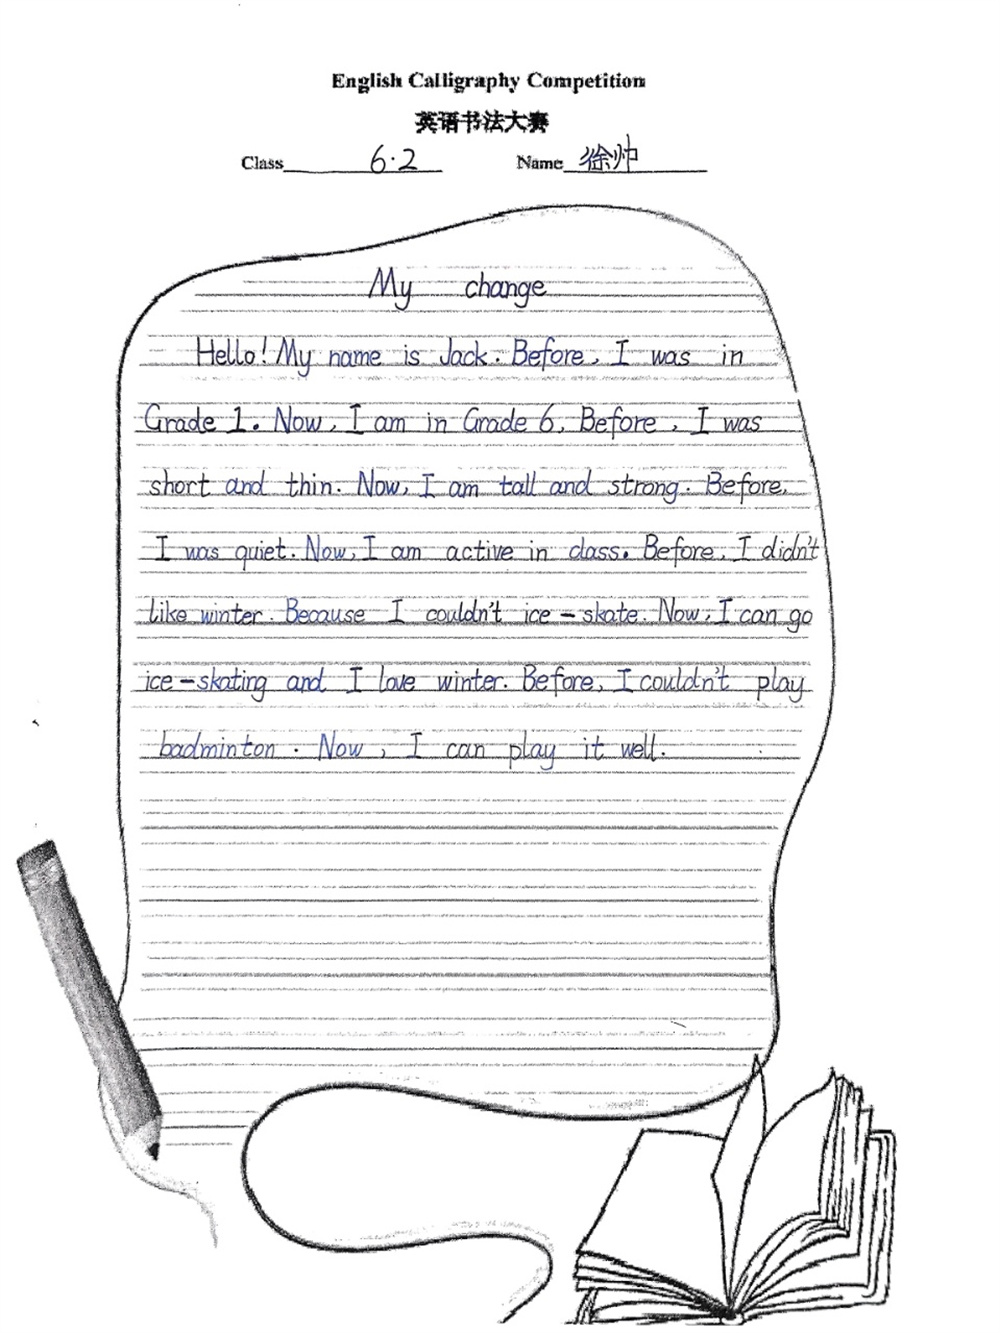 English Calligraphy Competition
英语书法大赛
Class 6·2 Name 徐帅
My change
Hello! My name is Jack. Before, I was in
Grade 1. Now, I am in Grade 6. Before, I was
short and thin. Now, I am tall and strong. Before,
I was quiet. Now, I am active in class. Before, I didn't
like winter. Because I couldn't ice-skate. Now, I can go
ice-skating and I love winter. Before, I couldn't play
badminton. Now, I can play it well.